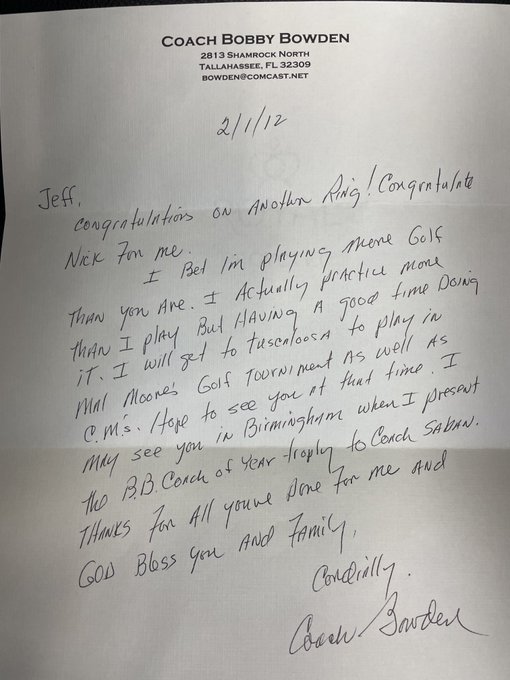 COACH BOBBY BOWDEN
2813 SHAMROCK NORTH
TALLAHASSEE, FL 32309
BOWDEN@COMCAST.NET
2/1/12
Jeff,
Congratulations on Another Ring! Congratulate
Nick For me.
I Bet I'm playing more Golf
Than you Are. I Actually practice more
than I play But Having A good time Doing
it. I will get to Tuscaloosa to play in
Mal Moore's Golf Tourniment As well As
C.M.'s. Hope to see you at that time. I
may see you in Birmingham when I present
the B.B. Coach of Year trophy to Coach Saban.
Thanks For All youve Done For me And
God Bless you And Family,
Cordially.
Coach Bowden